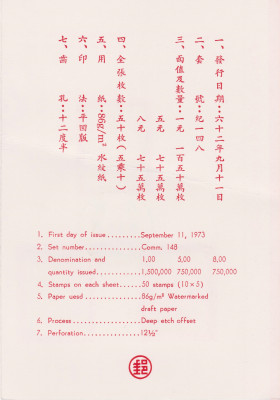 一、發行日期：六十二年九月十一日
二、套 號：紀一四八
三、面值及數量：一元 一百五十萬枚
五元 七十五萬枚
八元 七十五萬枚
四、全張枚數：五十枚（五乘十）
五、用 紙：86g/m² 水紋紙
六、印 法：平凹版
七、齒 孔：十二度半
1. First day of issue.........September 11, 1973
2. Set number...............Comm. 148
3. Denomination and 1.00 5.00 8.00
quantity issued...........1,500,000 750,000 750,000
4. Stamps on each sheet......50 stamps (10×5)
5. Paper uesd...............86g/m² Watermarked
draft paper
6. Process..................Deep etch offset
7. Perforation..............12½"
郵